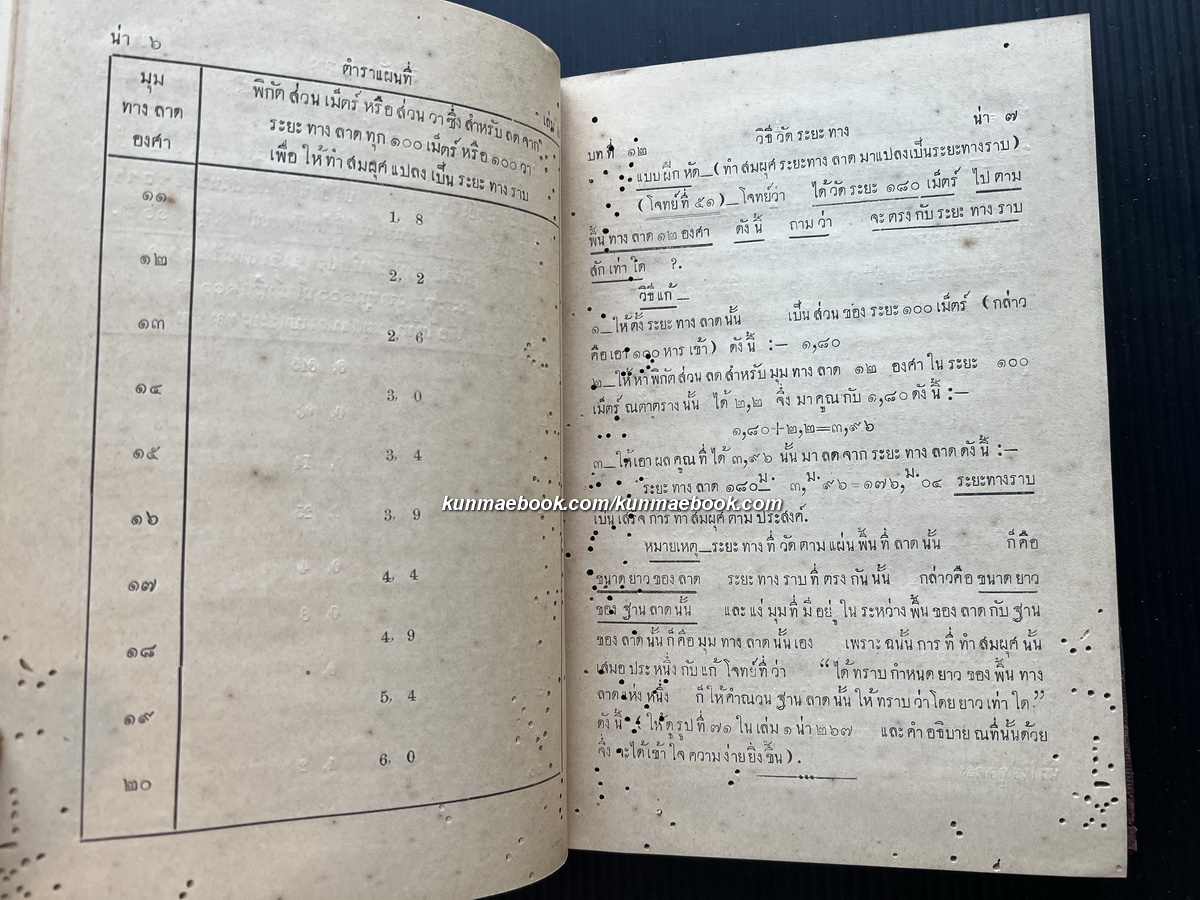 น่า ๖
ตำราแผ่นที่
มุม
ทาง ลาด
องศา
พิกัด ส่วน เม็ตร์ หรือ ส่วน วา ซึ่ง สำหรับ ลด จาก
ระยะ ทาง ลาด ทุก ๑๐๐ เม็ตร์ หรือ ๑๐๐ วา
เพื่อ ให้ ทำ สมผุศ แปลง เป็น ระยะ ทาง ราบ
๑๑ 1, 8
๑๒ 2, 2
๑๓ 2, 6
๑๔ 3, 0
๑๕ 3, 4
๑๖ 3, 9
๑๗ 4, 4
๑๘ 4, 9
๑๙ 5, 4
๒๐ 6, 0
น่า ๗
วิธี วัด ระยะ ทาง
บท ที่ ๑๒
แบบ ฝึก หัด_(ทำ สมผุศ ระยะทาง ลาด มาแปลงเป็นระยะทางราบ)
(โจทย์ ที่ ๕๑)_โจทย์ว่า ได้ วัด ระยะ ๑๘๐ เม็ตร์ ไป ตาม
พื้น ทาง ลาด ๑๒ องศา ดัง นี้ ถาม ว่า จะ ตรง กับ ระยะ ทาง ราบ
สัก เท่า ใด ?.
วิธี แก้_
๑_ให้ ตั้ง ระยะ ทาง ลาด นั้น เป็น ส่วน ของ ระยะ ๑๐๐ เม็ตร์ (กล่าว
คือ เอา ๑๐๐ หาร เข้า) ดัง นี้ :— ๑,๘๐
๒_ให้ หา พิกัด ส่วน ลด สำหรับ มุม ทาง ลาด ๑๒ องศา ใน ระยะ ๑๐๐
เม็ตร์ ณตาตราง นั้น ได้ ๒,๒ จึ่ง มา คูณ กับ ๑,๘๐ ดัง นี้ :—
๑,๘๐+๒,๒=๓,๙๖
๓_ให้ เอา ผล คูณ ที่ ได้ ๓,๙๖ นั้น มา ลด จาก ระยะ ทาง ลาด ดัง นี้ :—
ระยะ ทาง ลาด ๑๘๐ม._ ๓,ม.๙๖=๑๗๖,ม.๐๔ ระยะทางราบ
เป็น เสร็จ การ ทำ สมผุศ ตาม ประสงค์.
หมายเหตุ_ระยะ ทาง ที่ วัด ตาม แผ่น พื้น ที่ ลาด นั้น ก็ คือ
ขนาด ยาว ของ ลาด ระยะ ทาง ราบ ที่ ตรง กัน นั้น กล่าวคือ ขนาด ยาว
ของ ฐาน ลาด นั้น และ แง่ มุม ที่ มี อยู่ ใน ระหว่าง พื้น ของ ลาด กับ ฐาน
ของ ลาด นั้น ก็ คือ มุม ทาง ลาด นั้น เอง เพราะ ฉนั้น การ ที่ ทำ สมผุศ นั้น
เสมอ ประ หนึ่ง กับ แก้ โจทย์ ที่ ว่า “ได้ ทราบ กำหนด ยาว ของ พื้น ทาง
ลาด แห่ง หนึ่ง ก็ ให้ คำณวน ฐาน ลาด นั้น ให้ ทราบ ว่า โดย ยาว เท่า ใด”
ดัง นี้ (ให้ ดู รูป ที่ ๗๑ ใน เล่ม ๑ น่า ๒๖๗ และ คำ อธิบาย ณที่นั้นด้วย
จึ่ง จะได้ เข้า ใจ ความ ง่าย ยิ่ง ขึ้น).
kunmaebook.com/kunmaebook.com